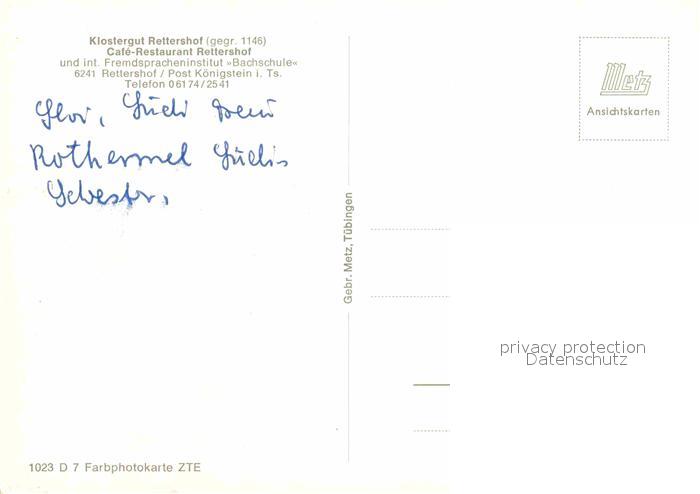 Klostergut Rettershof (gegr. 1146)
Café-Restaurant Rettershof
und int. Fremdspracheninstitut »Bachschule«
6241 Rettershof / Post Königstein i. Ts.
Telefon 06174/2541
Metz
Ansichtskarten
Rothermel
Gebr. Metz, Tübingen
privacy protection
Datenschutz
1023 D 7 Farbphotokarte ZTE